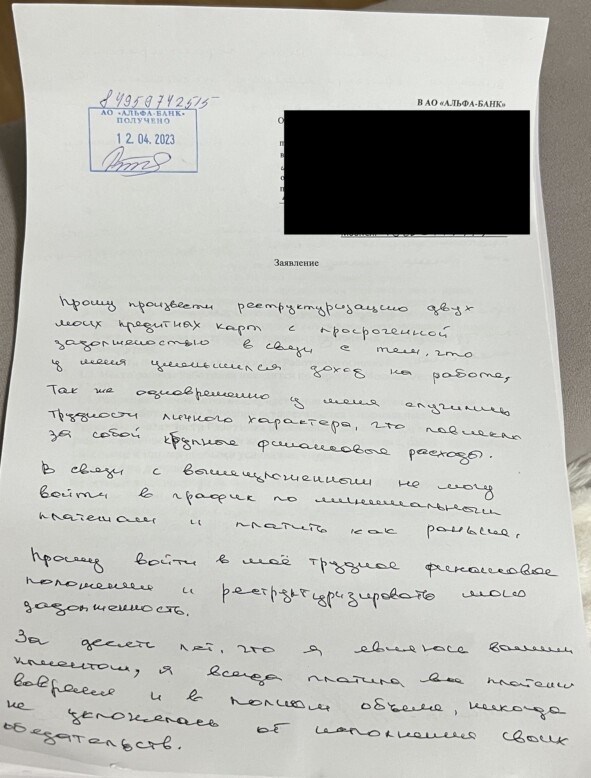 84959742515
АО «АЛЬФА-БАНК»
ПОЛУЧЕНО
12.04.2023
В АО «АЛЬФА-БАНК»
Заявление
Прошу произвести реструктуризацию двух
моих кредитных карт с просроченной
задолженостью в связи с тем, что
у меня уменьшился доход на работе,
так же одновременно у меня случились
трудности личного характера, что повлекло
за собой крупные финансовые расходы.
В связи с вышеизложенным не могу
войти в график по минимальным
платежам и платить как раньше.
Прошу войти в моё трудное финансовое
положение и реструктуризировать мою
задолженность.
За десять лет, что я являюсь вашим
клиентом, я всегда платила все платежи
вовремя и в полном объеме, никогда
не уклонялась от исполнения своих
обязательств.